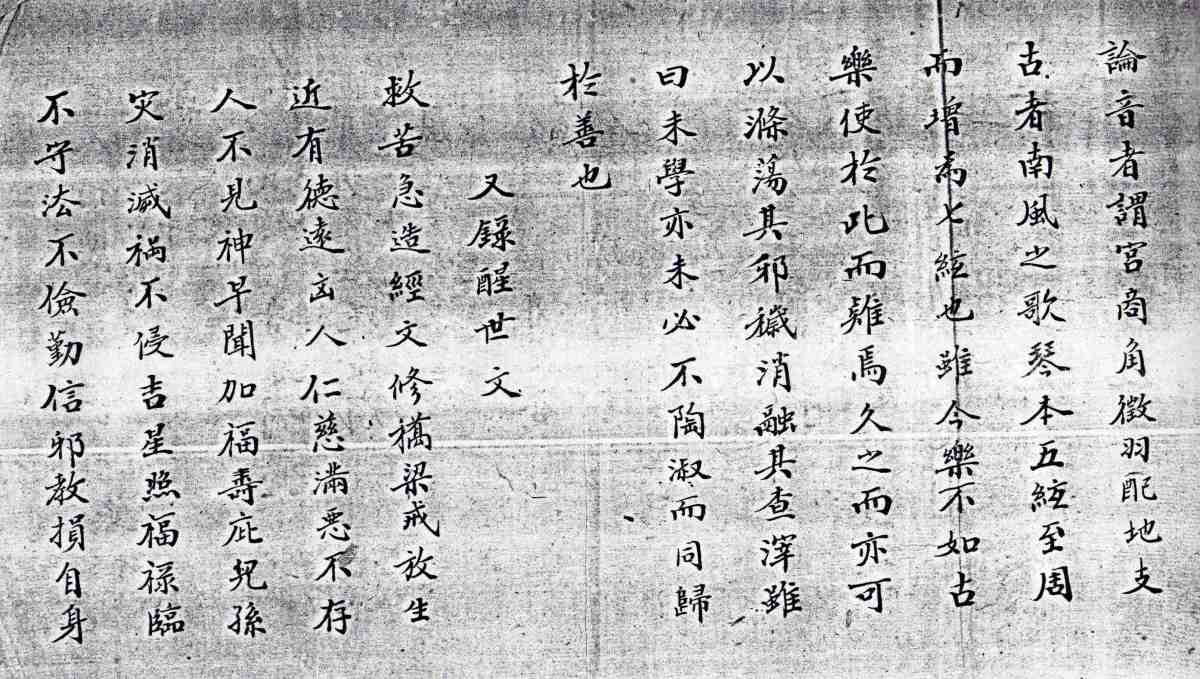 論音者謂宮商角徵羽配地支
古者南風之歌琴本五絃至周
而增為七絃也雖今樂不如古
樂使於此而雖焉久之而亦可
以滌蕩其邪穢消融其查滓雖
曰未學亦未必不陶淑而同歸
於善也
又錄醒世文
救苦急造經文修橋梁戒放生
近有德遠出人仁慈滿惡不存
人不見神早聞加福壽庇兒孫
灾消滅禍不侵吉星照福祿臨
不守法不儉勤信邪教損自身